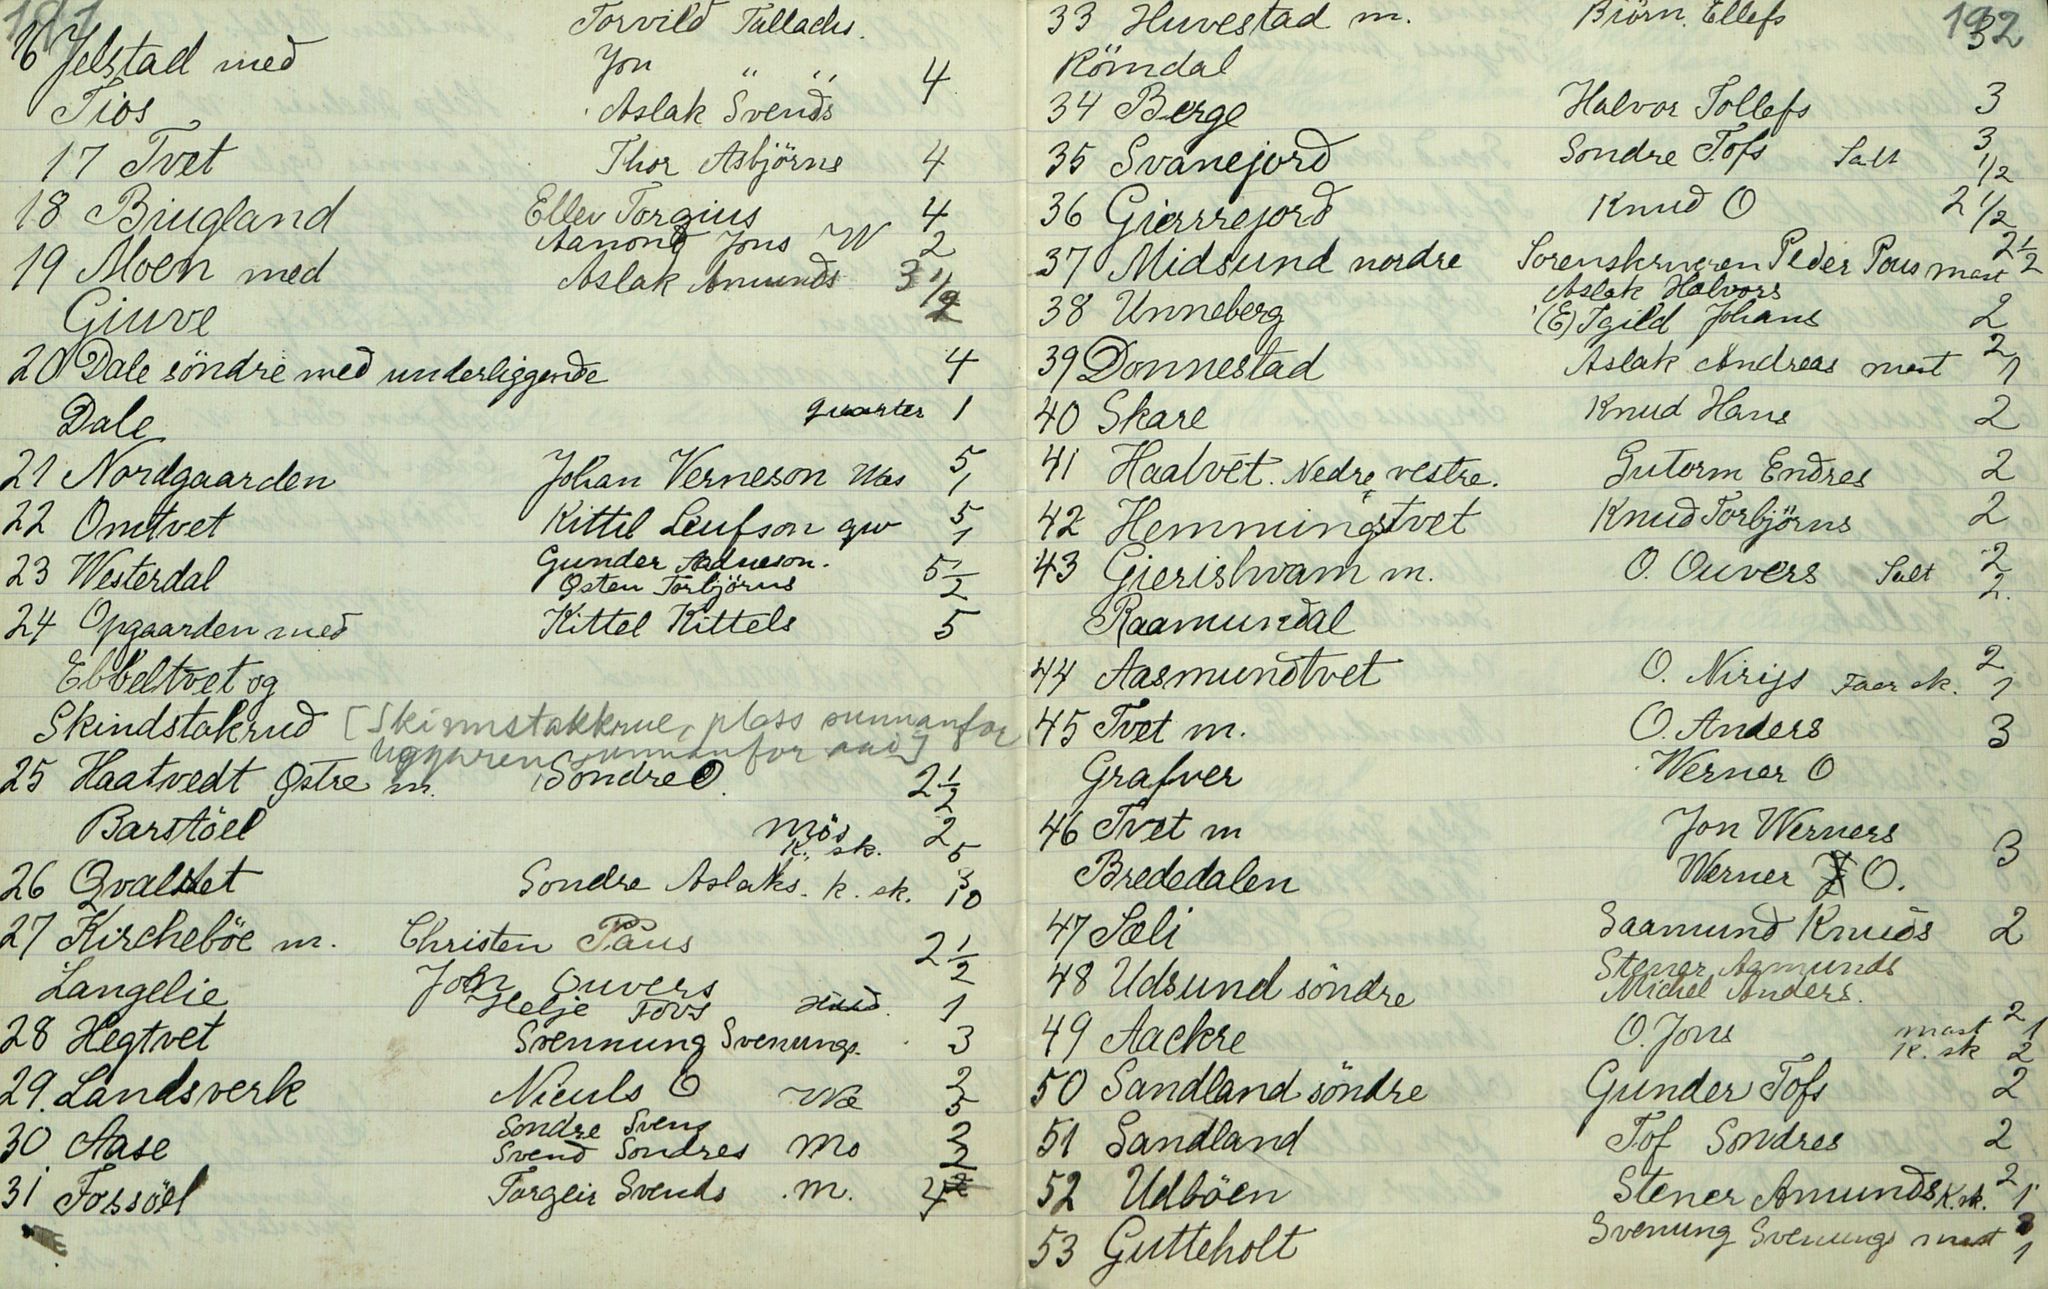 191
Torvild Tallachs.
16 Jelstad með Jon " " 4
Tios Aslak Svends
17 Tvet Thor Asbjörns 4
18 Biugland Ellev Torgius 4
Aanond Jons W 2
19 Moen med Aslak Amunds 3 1/2
Giuve
20 Dale söndre med underliggende 4
Dale quarter 1
21 Nordgaarden Johan Verneson 5 1
22 Omtvet Kittil Leufson qw 5 1
23 Westerdal Gunder Aadneson. 5 1/2
Østen Torbjörns
24 Opgaarden med Kittel Kittels 5
Ebbeltvet og
Skindstakrud [Skinnstakkrue, plass sunnanfor
sunnanfor aai]
25 Haatvedt Østre m. Sondre O. 2 1/2
Barstöel Mös 2
K. sk. 5
26 Qvalstet Sondre Aslaks. k. sk. 3 10
27 Kircheböe m. Christen Paus 2 1/2
Langelie John Ouvers
Helje Tovs Huud. 1
28 Hegtvet Svennung Svenungs. 3
29. Landsverk Niculs O We 2 5
30 Aase Sondre Svens 2
Svend Sondres Mo 2
31 Fossöel Torgeir Svends m. 4
192
33 Huvestad m. Biörn. Ellefs 3
Römdal
34 Berge Halvor Tollefs 3
35 Svanejord Sondre Tofs Salt 3 1/2
36 Gierrejord Knud O 2 1/2
37 Midsund nordre Sorenskriveren Peder Pous mast 2 1/2
Aslak Halvors
38 Unneberg (E) Igild Johans 2
39 Donnestad Aslak Andreas mast 2 1
40 Skare Knud Hans 2
41 Haatvet. Nedre, vestre. Gutorm Endres 2
42 Hemmingstvet Knud Torbjörns 2
43 Gierishvam m. O. Ouvers Salt 2 2.
Raamundal
44 Aasmundtvet O. Nirijs Faer sk. 2 1
45 Tvet m. O. Anders 3
Grafver Werner O
46 Tvet m Jon Werners 3
Brededalen Werner O.
47 Sæli Saamund Knuds 2
48 Udsund söndre Stener Aamunds
Michel Anders.
49 Aackre O. Jons mast 2 1
K. sk 2
50 Sandland söndre Gunder Tofs 2
51 Sandland Tof Sondres 2
52 Udböen Stener Amunds K. sk. 2 1
53 Gutteholt Svenung Svenungs mast 2 1